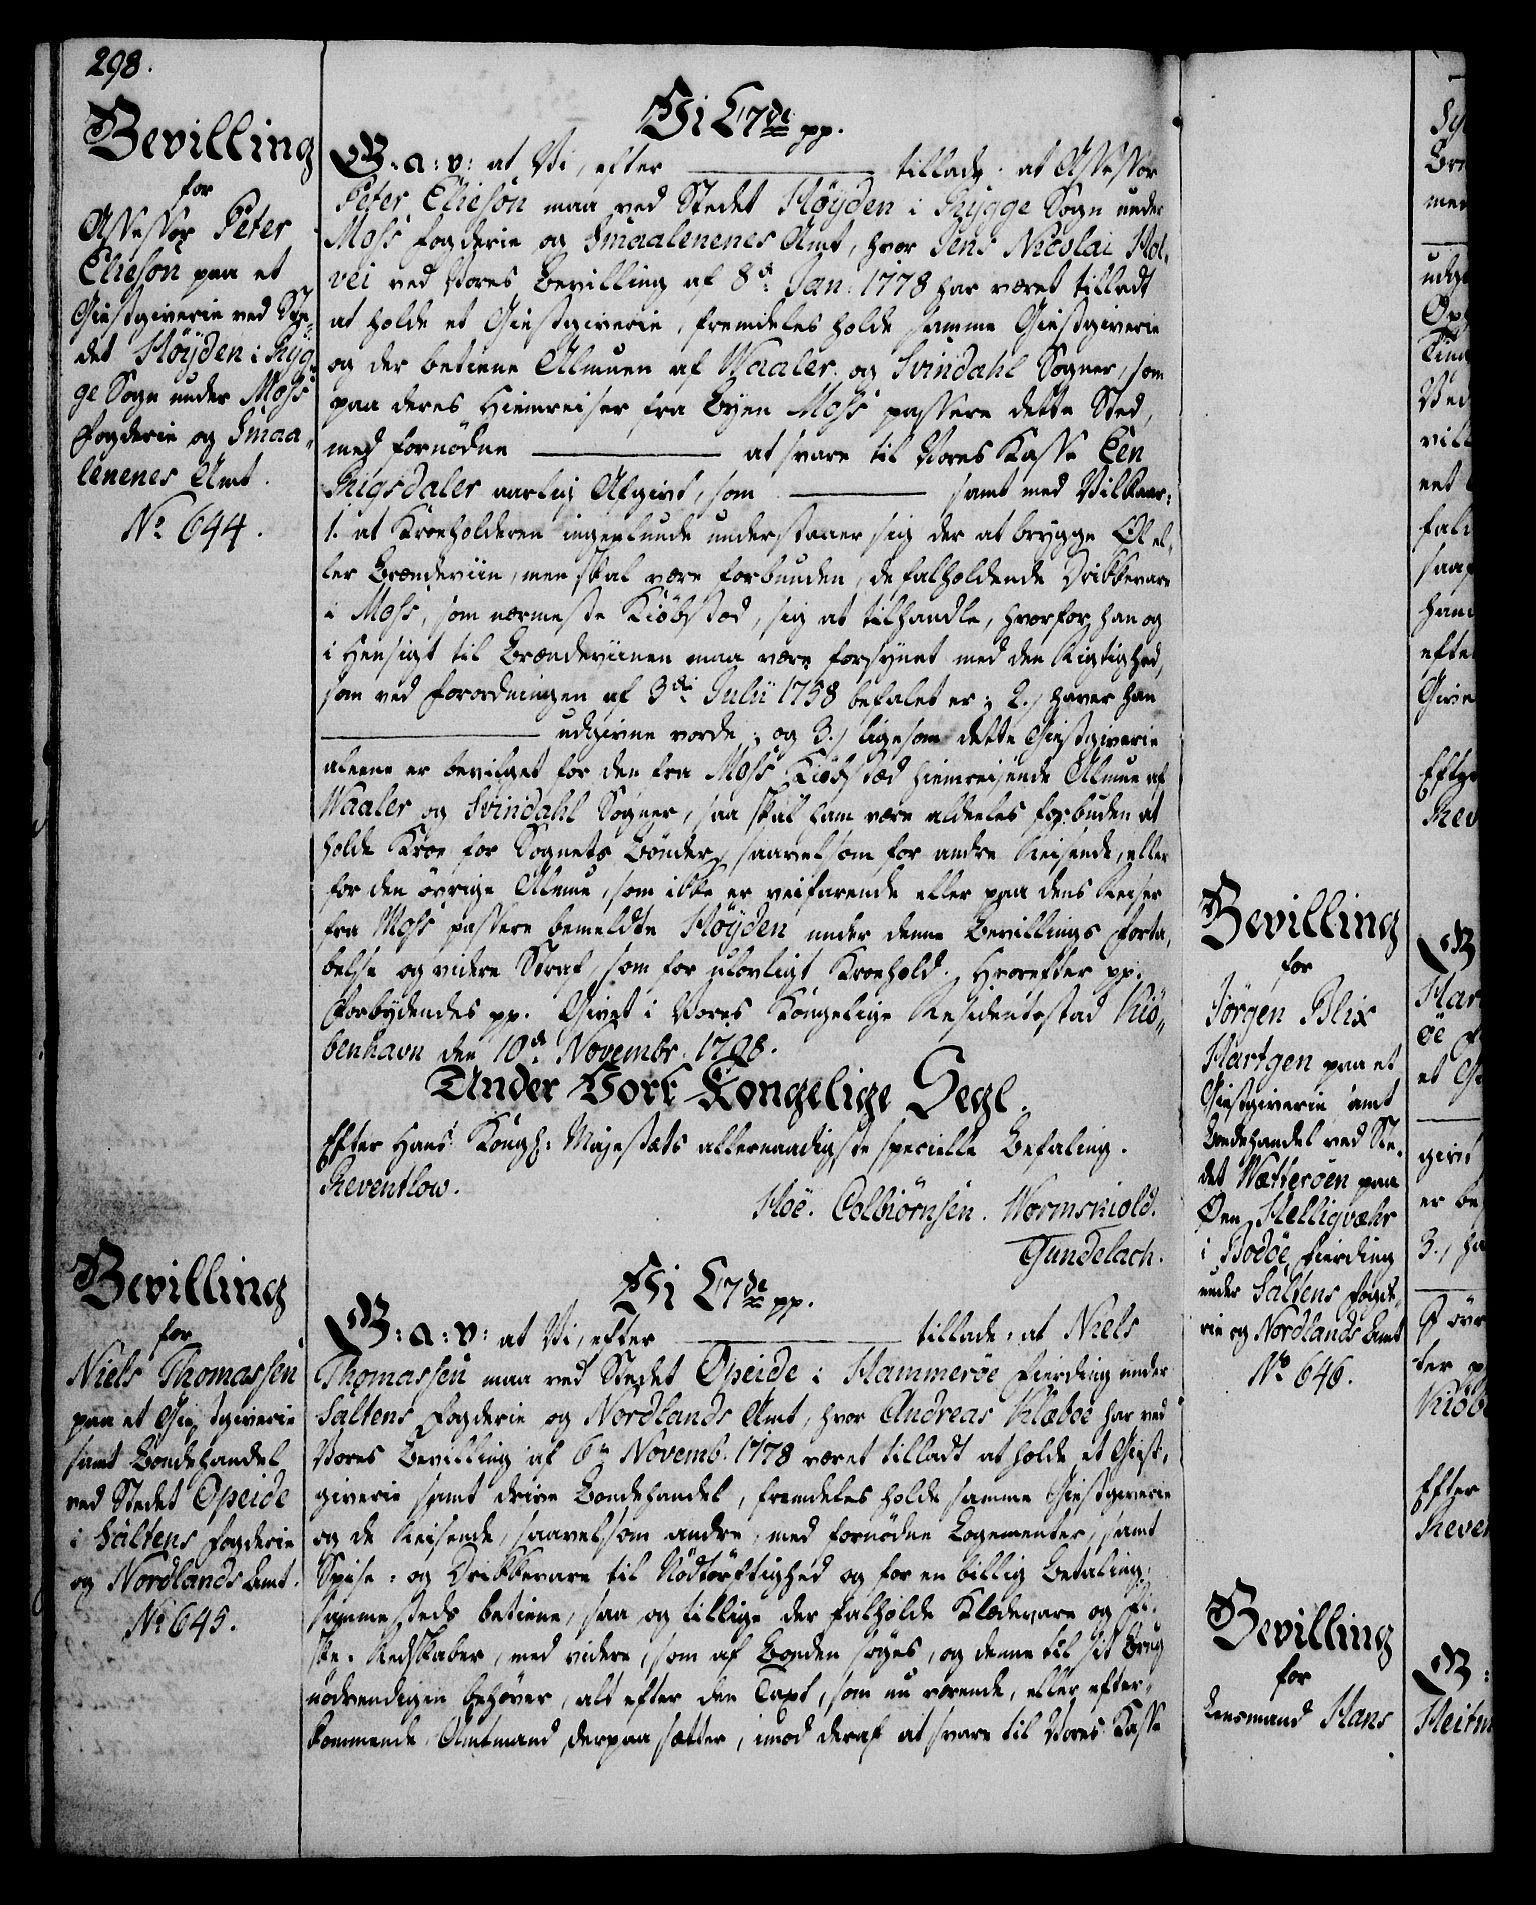 298.
Bevilling
for
Assessor Peter
Elieson paa et
Giestgiverie ved Ste-
det Höyden i Ryg-
ge Sogn under Moss
Fogderie og Smaa-
lenenes Amt.
No 644.
Vi C 7de pp.
G: a: v: at Vi, efter ——— tillade: at Assessor
Peter Elieson maa ved Stedet Höyden i Rygge Sogn under
Moss Fogderie og Smaalenenes Amt, hvor Jens Nicolai Hol-
vei ved Vores Bevilling af 8d Jan. 1778 har været tilladt
at holde et Giestgiverie, fremdeles holde samme Giestgiverie
og der betiene Almuen af Waaler og Svindahl Sogner, som
paa deres Hiemreiser fra Byen Moss passere dette Sted,
med fornødne ——— at svare til Vores Kasse Een
Rigsdaler aarlig Afgivt, som ——— samt med Vilkaar:
1. at Kroeholderen ingenlunde understaaer sig der at brygge Öl el-
ler Brændeviin, men skal være forbunden, de falholdende Drikkevare
i Moss, som nærmeste Kiöbstæd, sig at tilhandle, hvorfor han og
i Hensigt til Brændeviinen maa være forsynet med den Rigtighed,
som ved Forordningen af 3die Julii 1758 befalet er; 2., haver han
——— udgivne vorde; og 3., ligesom dette Giestgiverie
aleene er bevilget for den fra Moss Kiöbstæd hiemreisende Almue af
Waaler og Svindahl Sogner, saa skal ham være aldeeles forbuden at
holde Kroe for Sognets Bönder, saavelsom for andre Reisende, eller
for den övrige Almue, som ikke er veifarende eller paa dens Reiser
fra Moss passere bemeldte Höyden under denne Bevillings Forta-
belse og videre Straf, som for ulovligt Kroehold. Hvorefter pp.
Forbydendes pp. Givet i Vores Kongelige Residentsstad Kiö-
benhavn den 10d Novembr. 1798.
Under Vort Kongelige Segl.
Efter Hans Kongl: Majestæts allernaadigste specielle Befaling.
Reventlow.
Höe. Colbiörnsen. Wormskiold.
Gundelach.
Bevilling
for
Niels Thomassen
paa et Giestgiverie
samt Bondehandel
ved Stedet Opeide
i Saltens Fogderie
og Nordlands Amt.
No 645.
Vi C 7de pp.
G: a: v: at Vi, efter ——— tillade: at Niels
Thomassen maa ved Stedet Opeide i Hammeröe Fierding under
Saltens Fogderie og Nordlands Amt, hvor Andreas Klæboe har ved
Vores Bevilling af 6te Novemb. 1778 været tilladt at holde et Giest-
giverie samt drive Bondehandel, fremdeles holde samme Giestgiverie
og de Reisende, saavelsom andre, med fornødne Logementer, samt
Spise- og Drikkevare til Nödtörftighed og for en billig Betaling,
sammesteds betiene, saa og tillige der falholde Klædevare og Fi-
ske-Redskaber, med videre, som af Bonden søges, og denne til sit Brug
nödvendigen behöver, alt efter den Taxt, som nu værende, eller efter-
kommende Amtmand, derpaa sætter, imod deraf at svare til Vores Kasse
Bevilling
for
Jörgen Blix
Hartgen paa et
Giestgiverie samt
Bondehandel ved Ste-
det Wætteröen paa
Öen Helligvæhr
i Bodöe Fierding
under Saltens Fogde-
rie og Nordlands Amt
No 646.
Bevilling
for
Lensmand Hans